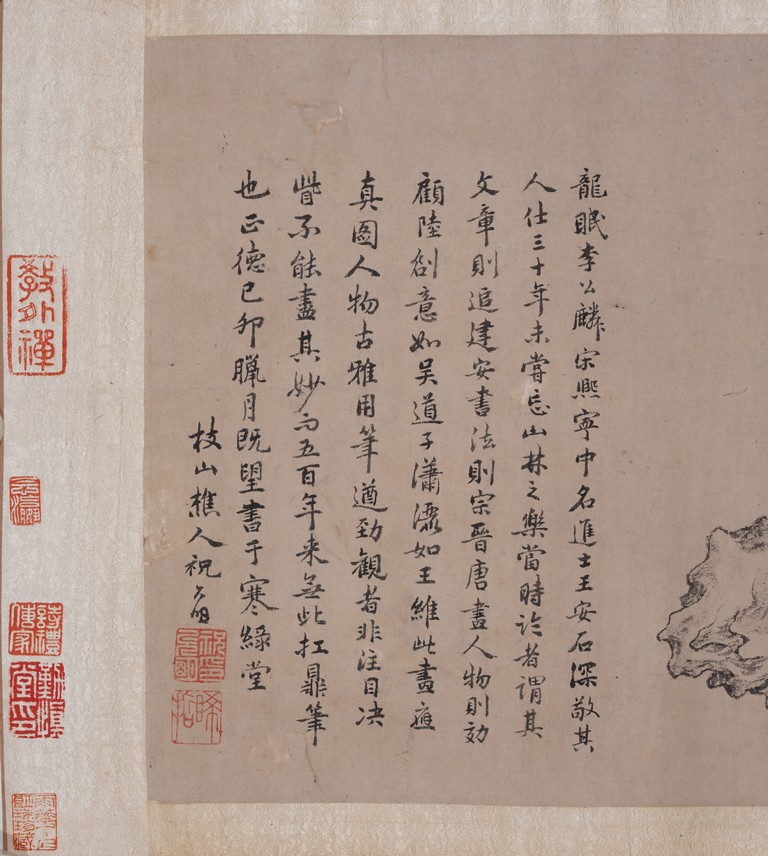 龍眠李公麟宋熙寧中名進士王安石深敬其
人仕三十年未嘗忘山林之樂當時論者謂其
文章則追建安書法則宗晉唐畫人物則効
顧陸創意如吳道子瀟灑如王維此畫應
真圖人物古雅用筆遒勁觀者非注目决
眥不能盡其妙而五百年来無此扛鼎筆
也正德己卯臘月既望書于寒綠堂
枝山樵人祝允明
祝允明印
晞喆
教外禪
詩禮傳家